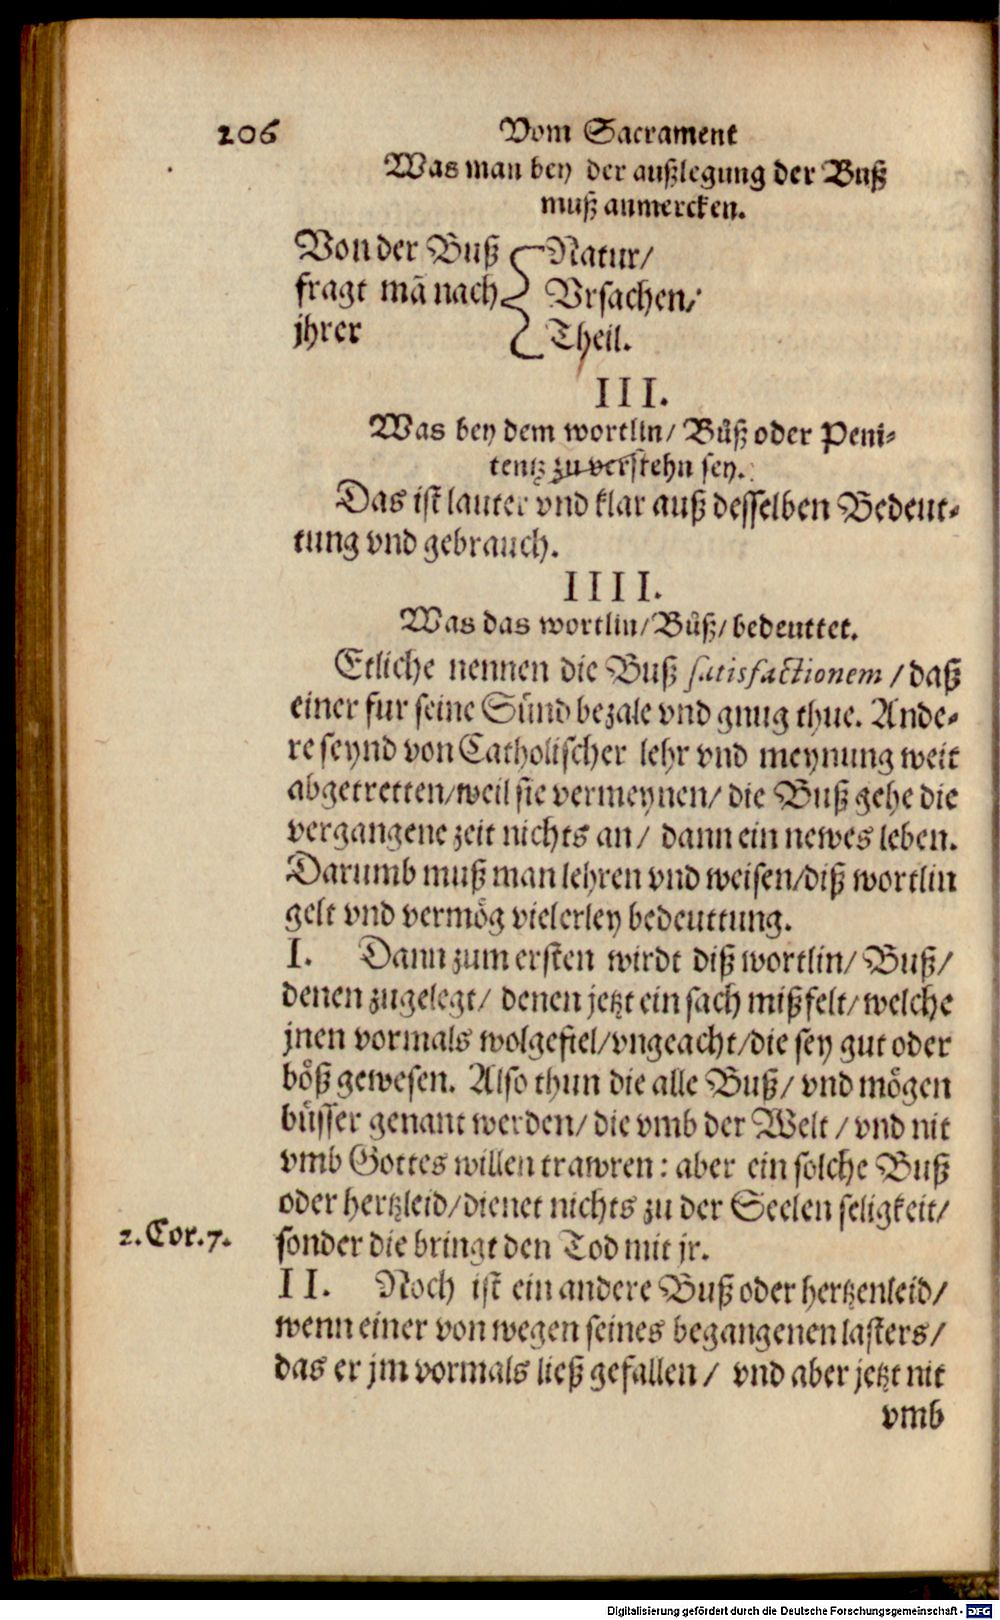 206 Vom Sacrament
Was man bey der außlegung der Buß
muß anmercken.
Von der Buß
fragt mā nach
jhrer
Natur/
Vrsachen/
Theil.
III.
Was bey dem wortlin/ Bůß oder Peni⸗
tentz zu verstehn sey.
Das ist lauter vnd klar auß desselben Bedeut⸗
tung vnd gebrauch.
IIII.
Was das wortlin/ Bůß/ bedeuttet.
Etliche nennen die Buß satisfactionem / daß
einer fur seine Sünd bezale vnd gnug thue. Ande⸗
re seynd von Catholischer lehr vnd meynung weit
abgetretten/weil sie vermeynen/ die Buß gehe die
vergangene zeit nichts an/ dann ein newes leben.
Darumb muß man lehren vnd weisen/diß wortlin
gelt vnd vermög vielerley bedeuttung.
I. Dann zum ersten wirdt diß wortlin/ Buß/
denen zugelegt/ denen jetzt ein sach mißfelt/welche
jnen vormals wolgefiel/vngeacht/die sey gut oder
böß gewesen. Also thun die alle Buß/ vnd mögen
büsser genant werden/ die vmb der Welt / vnd nit
vmb Gottes willen trawren: aber ein solche Buß
oder hertzleid/dienet nichts zu der Seelen seligkeit/
2. Cor. 7. sonder die bringt den Tod mit jr.
II. Noch ist ein andere Buß oder hertzenleid/
wenn einer von wegen seines begangenen lasters/
das er jm vormals ließ gefallen / vnd aber jetzt nit
vmb
Digitalisierung gefördert durch die Deutsche Forschungsgemeinschaft - DFG